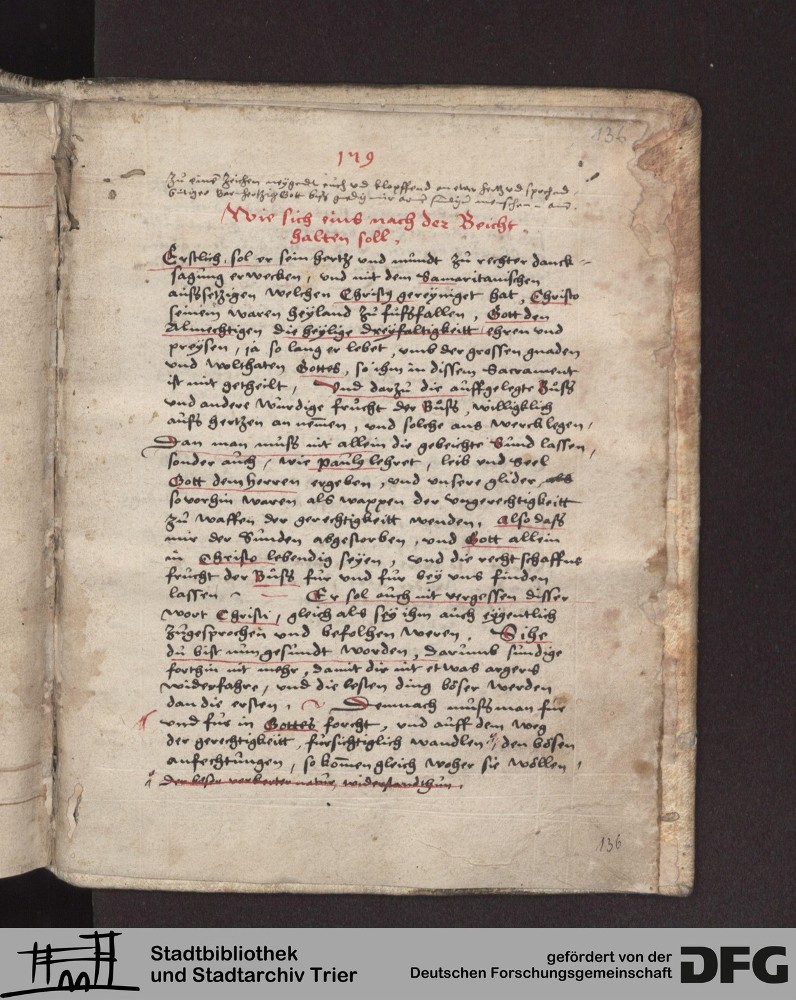 136
179
Zu eine Zeichen neygendt euch vnd klopffend an ewer hertz vnd sprechend
Wie sich eins nach der Beicht
halten soll.
Erstlich, sol er sein hertz vnd mundt zu rechter danck=
sagung erwecken, vnd mit dem Samaritanischen
aussetzigen welchen Christus gereyniget hat, Christo
seinem waren heyland zu fussfallen, Gott den
Almechtigen die heylige dreyfaltigkeitt ehren vnd
preysen, ja so lang er lebet, vmb der grossen gnaden
vnd wolthaten Gottes, so ihm in dissem Sacrament
ist mit getheilt, Vnd darzu die auffgelegte Buss
vnd andere würdige frucht der Buss, williglich
auss hertzen an nemen, vnd solche ans werck legen,
Dan man muss nit allein die gebeichte Sund lassen,
sonder auch, wie Paulus lehret, leib vnd Seel
Gott dem Herren ergeben, vnd vnsere glider, als
so vorhin waren als wappen der vngerechtigkeitt
zu waffen der gerechtigkeitt wenden, Also dass
mir der Sunden abgestorben, vnd Gott allein
in Christo lebendig seyen, vnd die rechtschaffne
frucht der Buss für vnd für bey vns finden
lassen Er sol auch nit vergessen disser
wort Christi, gleich als sey ihm auch eygentlich
zugesprochen vnd befolhen weren, Sihe
du bist nun gesundt worden, darumb sündige
forthin nit mehr, damit dir nit etwas argers
widerfahre, vnd die lesten ding böser werden
dan die ersten, Demnach muss man für
vnd für in Gottes forcht, vnd auff dem weg
der gerechtigkeitt, fürsichtiglich wandlen, den bösen
anfechtungen, so komen gleich woher sie wöllen,
der böser verkerter natur, widerstandt thun.
136
Stadtbibliothek
und Stadtarchiv Trier
gefördert von der
Deutschen Forschungsgemeinschaft
DFG